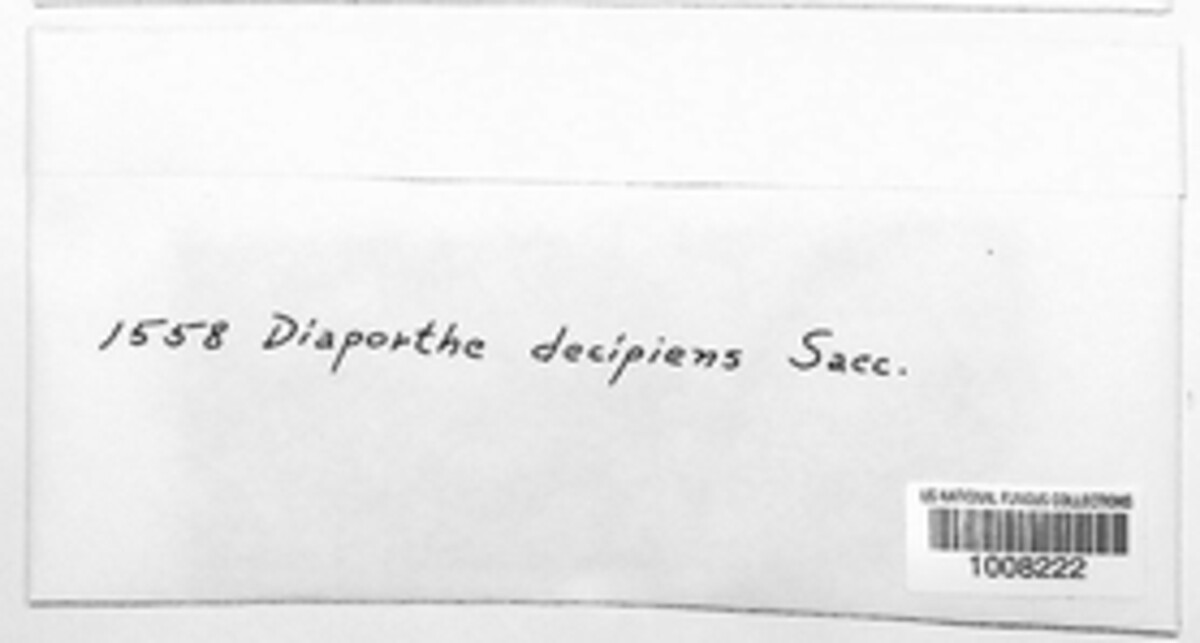 1558 Diaporthe decipiens Sacc.
US NATIONAL FUNGUS COLLECTIONS
1008222